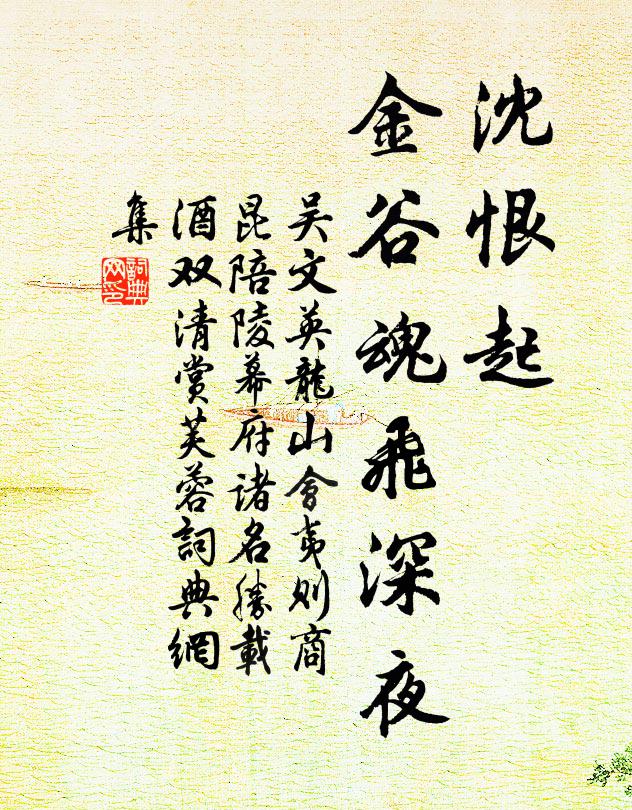 沈恨起
金谷魂飛深夜
吴文英龍山會夷则商
昆陪陵幕府诸名勝載
酒双清赏芙蓉詞典網
集
詞典網印